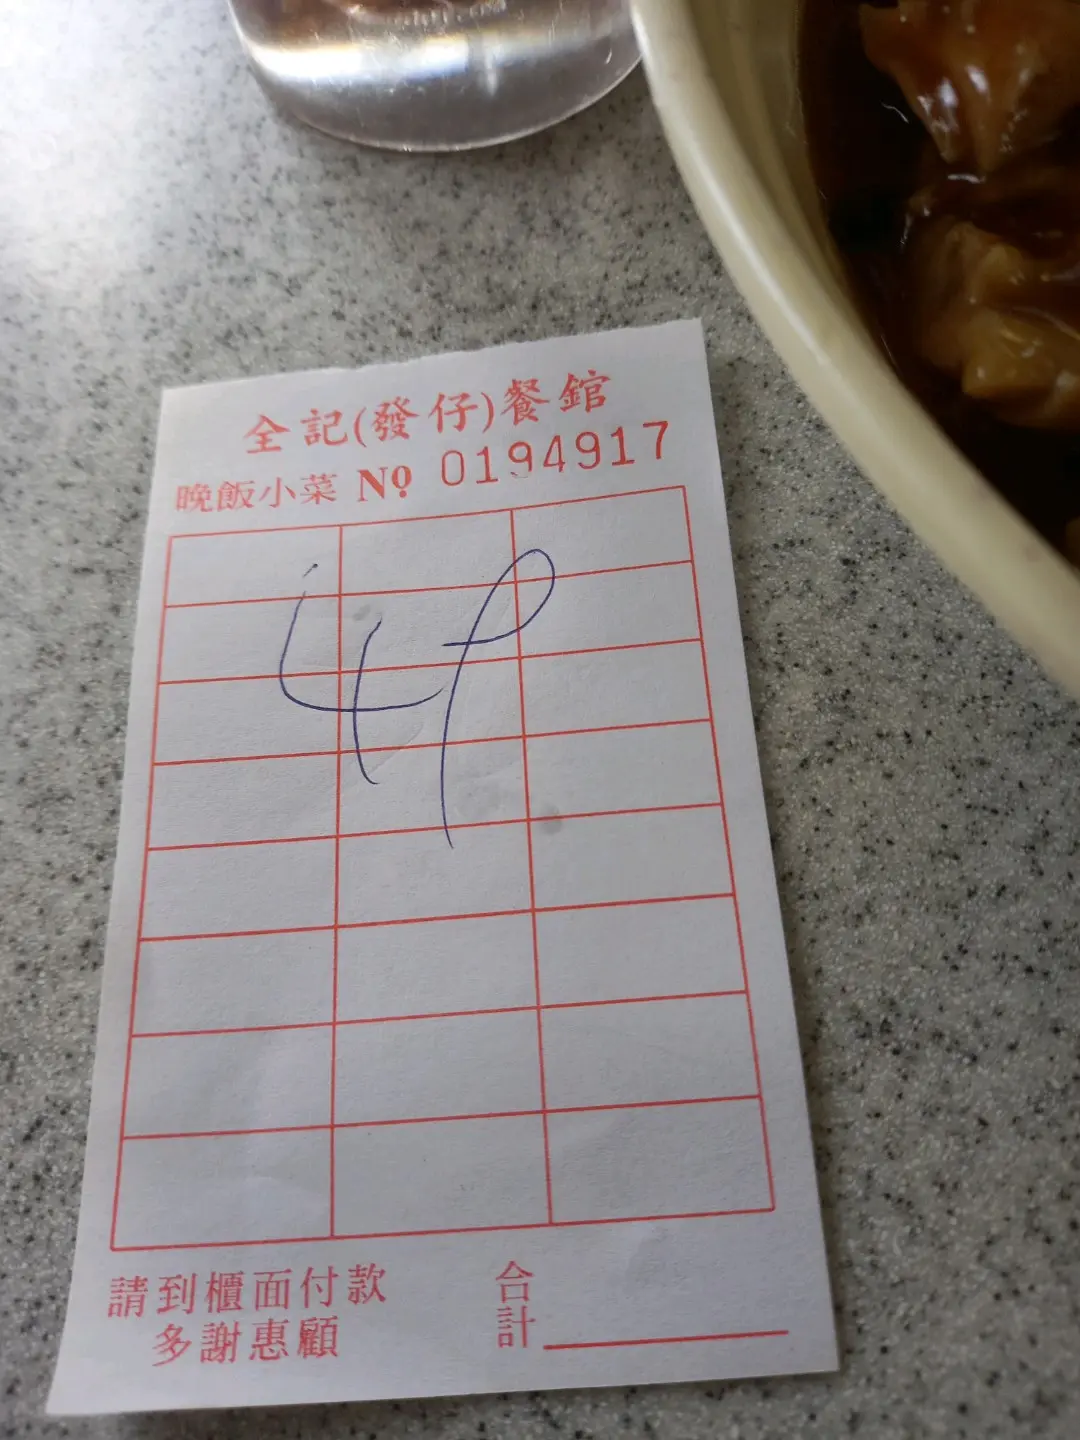 全記(發仔)餐舘
晚飯小菜 No 0194917
49
請到櫃面付款
多謝惠顧
合計